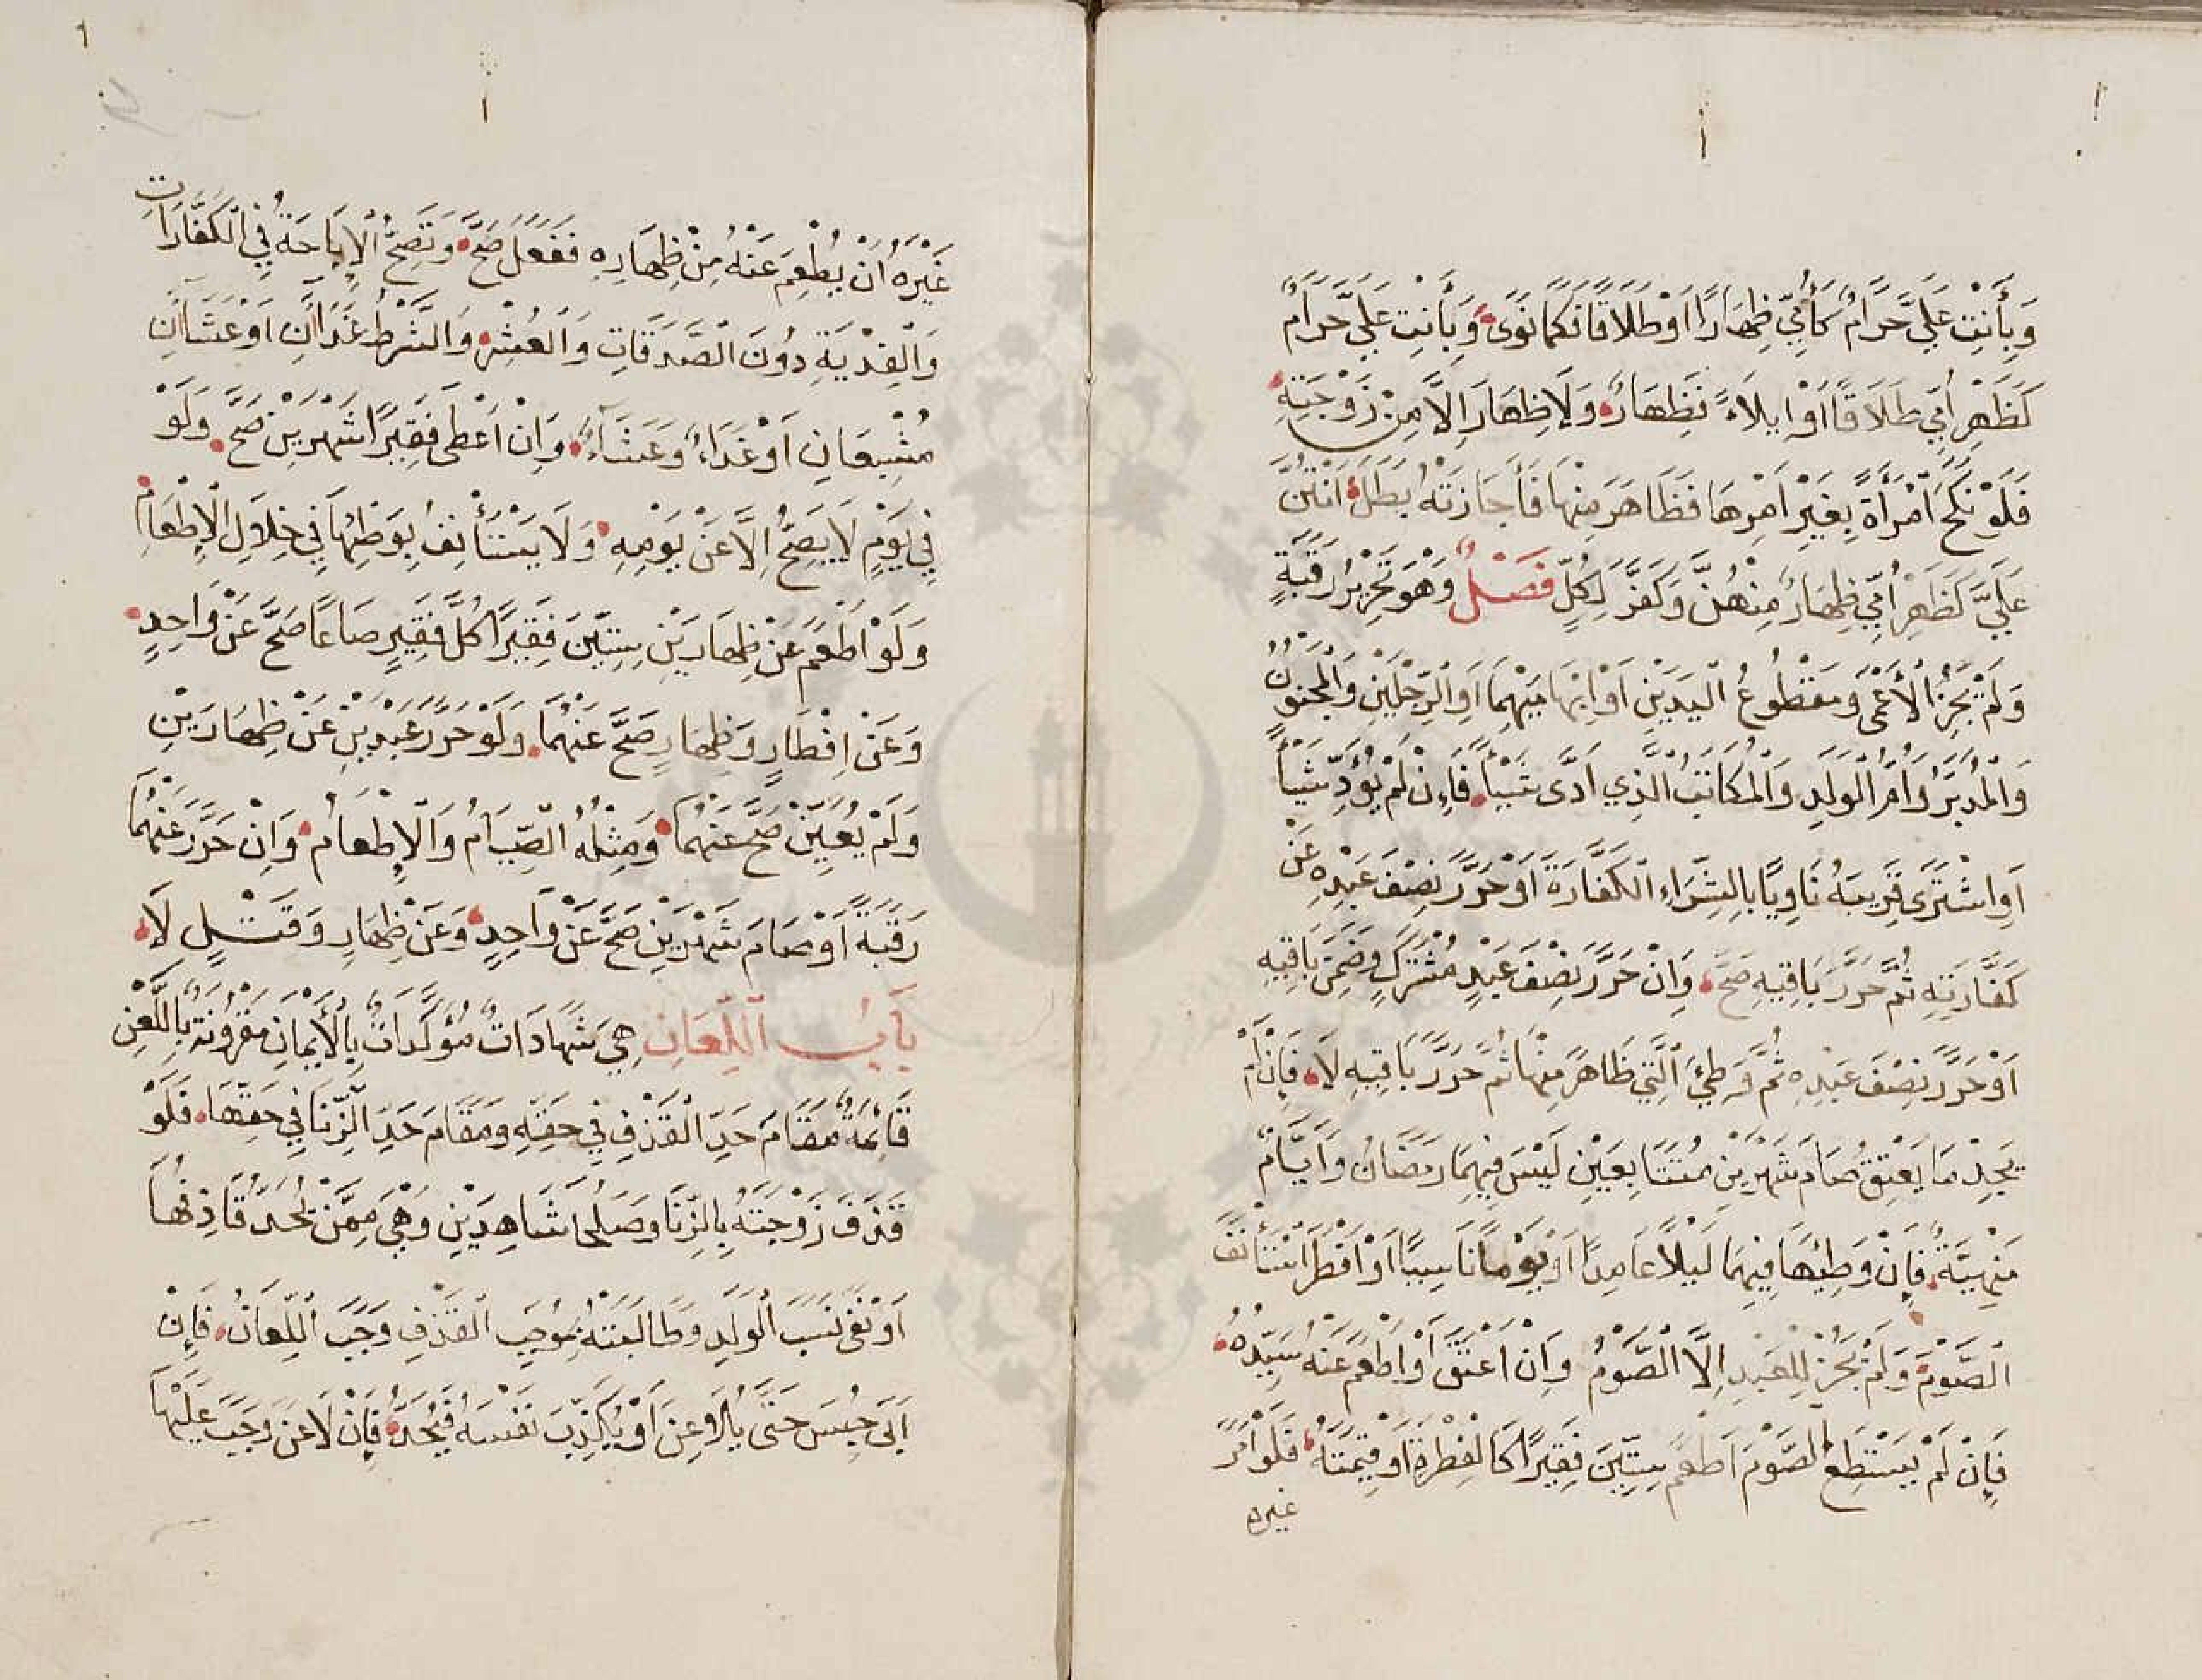 وَبِأَنْتِ عَلَيَّ حَرَامٌ كَأُمِّي ظِهَارًا اَوْ طَلَاقًا فَكَمَا نَوَى وَبِأَنْتِ عَلَيَّ حَرَامٌ
كَظَهْرِ أُمِّي طَلَاقًا أَوْ إِيلَاءً فَظِهَارٌ وَلَا ظِهَارَ اِلَّا مِنْ زَوْجَتِهِ
فَلَوْ نَكَحَ امْرَأَةً بِغَيْرِ اَمْرِهَا فَظَاهَرَ مِنْهَا فَأَجَازَتْهُ بَطَلَ اَنْتُنَّ
عَلَيَّ كَظَهْرِ أُمِّي ظِهَارٌ مِنْهُنَّ وَكَفَّرَ لِكُلٍّ فَصْلٌ وَهُوَ تَحْرِيْرُ رَقَبَةٍ
وَلَمْ يَجُزِ الْأَعْمَى وَمَقْطُوعُ الْيَدَيْنِ اَوْ اِبْهَامَيْهِمَا اَوِ الرِّجْلَيْنِ وَالْمَجْنُونُ
وَالْمُدَبَّرُ وَأُمُّ الْوَلَدِ وَالْمُكَاتَبُ الَّذِي اَدَّى شَيْئًا فَاِنْ لَمْ يُؤَدِّ شَيْأً
اَوِ اشْتَرَى قَرِيبَهُ نَاوِيًا بِالشِّرَاءِ الْكَفَّارَةَ اَوْ حَرَّرَ نِصْفَ عَبْدِهِ عَنْ
كَفَّارَتِهِ ثُمَّ حَرَّرَ بَاقِيهِ صَحَّ وَاِنْ حَرَّرَ نِصْفَ عَبْدٍ مُشْتَرَكٍ وَضَمِنَ بَاقِيهِ
اَوْ حَرَّرَ نِصْفَ عَبْدِهِ ثُمَّ وَطِئَ الَّتِي ظَاهَرَ مِنْهَا ثُمَّ حَرَّرَ بَاقِيهِ لَا فَاِنْ لَمْ
يَجِدْ مَا يَعْتِقُ صَامَ شَهْرَيْنِ مُتَتَابِعَيْنِ لَيْسَ فِيْهِمَا رَمَضَانُ وَاَيَّامٌ
مَنْهِيَّةٌ فَاِنْ وَطِئَهَا فِيْهِمَا لَيْلًا عَامِدًا اَوْ يَوْمًا نَاسِيًا اَوْ اَفْطَرَ اسْتَأْنَفَ
الصَّوْمَ وَلَمْ يَجُزْ لِلْعَبْدِ اِلَّا الصَّوْمُ وَاِنْ اَعْتَقَ أَوْ اَطْعَمَ عَنْهُ سَيِّدُهُ
فَاِنْ لَمْ يَسْتَطِعِ الصَّوْمَ اَطْعَمَ سِتِّيْنَ فَقِيْرًا كَالْفِطْرَةِ اَوْ قِيْمَتَهُ فَلَوْ اَمَرَ
غيره
غَيْرَهُ أَنْ يُطْعِمَ عَنْهُ مِنْ ظِهَارِهِ فَفَعَلَ صَحَّ وَتَصِحُّ الْاِبَاحَةُ فِي الْكَفَّارَاتِ
وَالْفِدْيَةِ دُوْنَ الصَّدَقَاتِ وَالْعُشْرِ وَالشَّرْطُ غَدَاآنِ اَوْ عَشَاآنِ
مُشْبِعَانِ اَوْ غَدَاءٌ وَعَشَاءٌ وَاِنْ اَعْطَى فَقِيْرًا شَهْرَيْنِ صَحَّ وَلَوْ
فِي يَوْمٍ لَا يَصِحُّ اِلَّا عَنْ يَوْمِهِ وَلَا يَسْتَأْنِفُ بِوَطْئِهَا فِي خِلَالِ الْاِطْعَامِ
وَلَوْ اَطْعَمَ عَنْ ظِهَارَيْنِ سِتِّيْنَ فَقِيْرًا كُلَّ فَقِيْرٍ صَاعًا صَحَّ عَنْ وَاحِدٍ
وَعَنْ اِفْطَارٍ وَظِهَارٍ صَحَّ عَنْهُمَا وَلَوْ حَرَّرَ عَبْدَيْنِ عَنْ ظِهَارَيْنِ
وَلَمْ يُعَيِّنْ صَحَّ عَنْهُمَا وَمِثْلُهُ الصِّيَامُ وَالْاِطْعَامُ وَاِنْ حَرَّرَ عَنْهُمَا
رَقَبَةً اَوْ صَامَ شَهْرَيْنِ صَحَّ عَنْ وَاحِدٍ وَعَنْ ظِهَارٍ وَقَتْلٍ لَا
بَابُ اللِّعَانِ هِيَ شَهَادَاتٌ مُؤَكَّدَاتٌ بِالْأَيْمَانِ مَقْرُوْنَةٌ بِاللَّعْنِ
قَائِمَةٌ مَقَامَ حَدِّ الْقَذْفِ فِي حَقِّهِ وَمَقَامَ حَدِّ الزِّنَا فِي حَقِّهَا فَلَوْ
قَذَفَ زَوْجَتَهُ بِالزِّنَا وَصَلُحَا شَاهِدَيْنِ وَهِيَ مِمَّنْ يُحَدُّ قَاذِفُهَا
اَوْ نَفَى نَسَبَ الْوَلَدِ وَطَالَبَتْهُ بِمُوْجَبِ الْقَذْفِ وَجَبَ اللِّعَانُ فَاِنْ
اَبَى حُبِسَ حَتَّى يُلَاعِنَ اَوْ يُكَذِّبَ نَفْسَهُ فَيُحَدُّ فَاِنْ لَاعَنَ وَجَبَ عَلَيْهَا